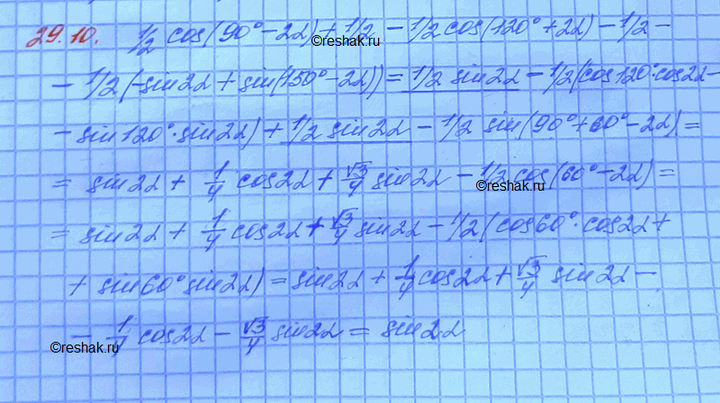 29.10. 1/2 cos(90° - 2α) + 1/2 - 1/2 cos(120° + 2α) - 1/2 -
©reshak.ru
- 1/2 (-sin2α + sin(150° - 2α)) = 1/2 sin2α - 1/2 (cos120°·cos2α -
- sin120°·sin2α) + 1/2 sin2α - 1/2 sin(90° + 60° - 2α) =
= sin2α + 1/4 cos2α + √3/4 sin2α - 1/2 cos(60° - 2α) =
©reshak.ru
= sin2α + 1/4 cos2α + √3/4 sin2α - 1/2 (cos60°·cos2α +
+ sin60° sin2α) = sin2α + 1/4 cos2α + √3/4 sin2α -
- 1/4 cos2α - √3/4 sin2α = sin2α
©reshak.ru